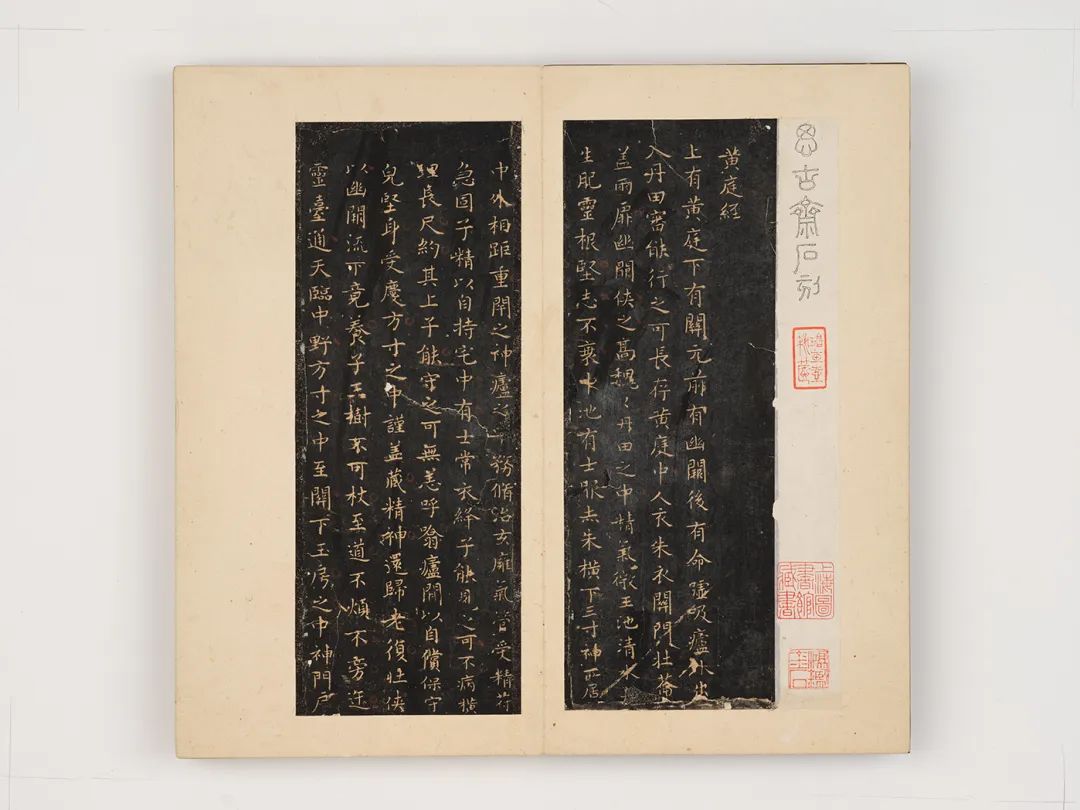 思古齋石刻
上海圖書館藏書
黃庭經
上有黃庭下有關元前有幽闕後有命噓吸廬外出
入丹田審能行之可長存黃庭中人衣朱衣關門壯籥
蓋兩扉幽闕俠之高魏〻丹田之中精氣微玉池清水
生肥靈根堅志不衰中池有士服赤朱橫下三寸神所居
中外相距重閉之神廬之中務脩治玄雍氣管受精符
急固子精以自持宅中有士常衣絳子能見之可不病橫
理長尺約其上子能守之可無恙呼噏廬閒以自償保守
皃堅身受慶方寸之中謹蓋藏精神還歸老復壯俠
以幽闕流下竟養子玉樹不可杖至道不煩不旁迕
靈臺通天臨中野方寸之中至關下玉房之中神門戶